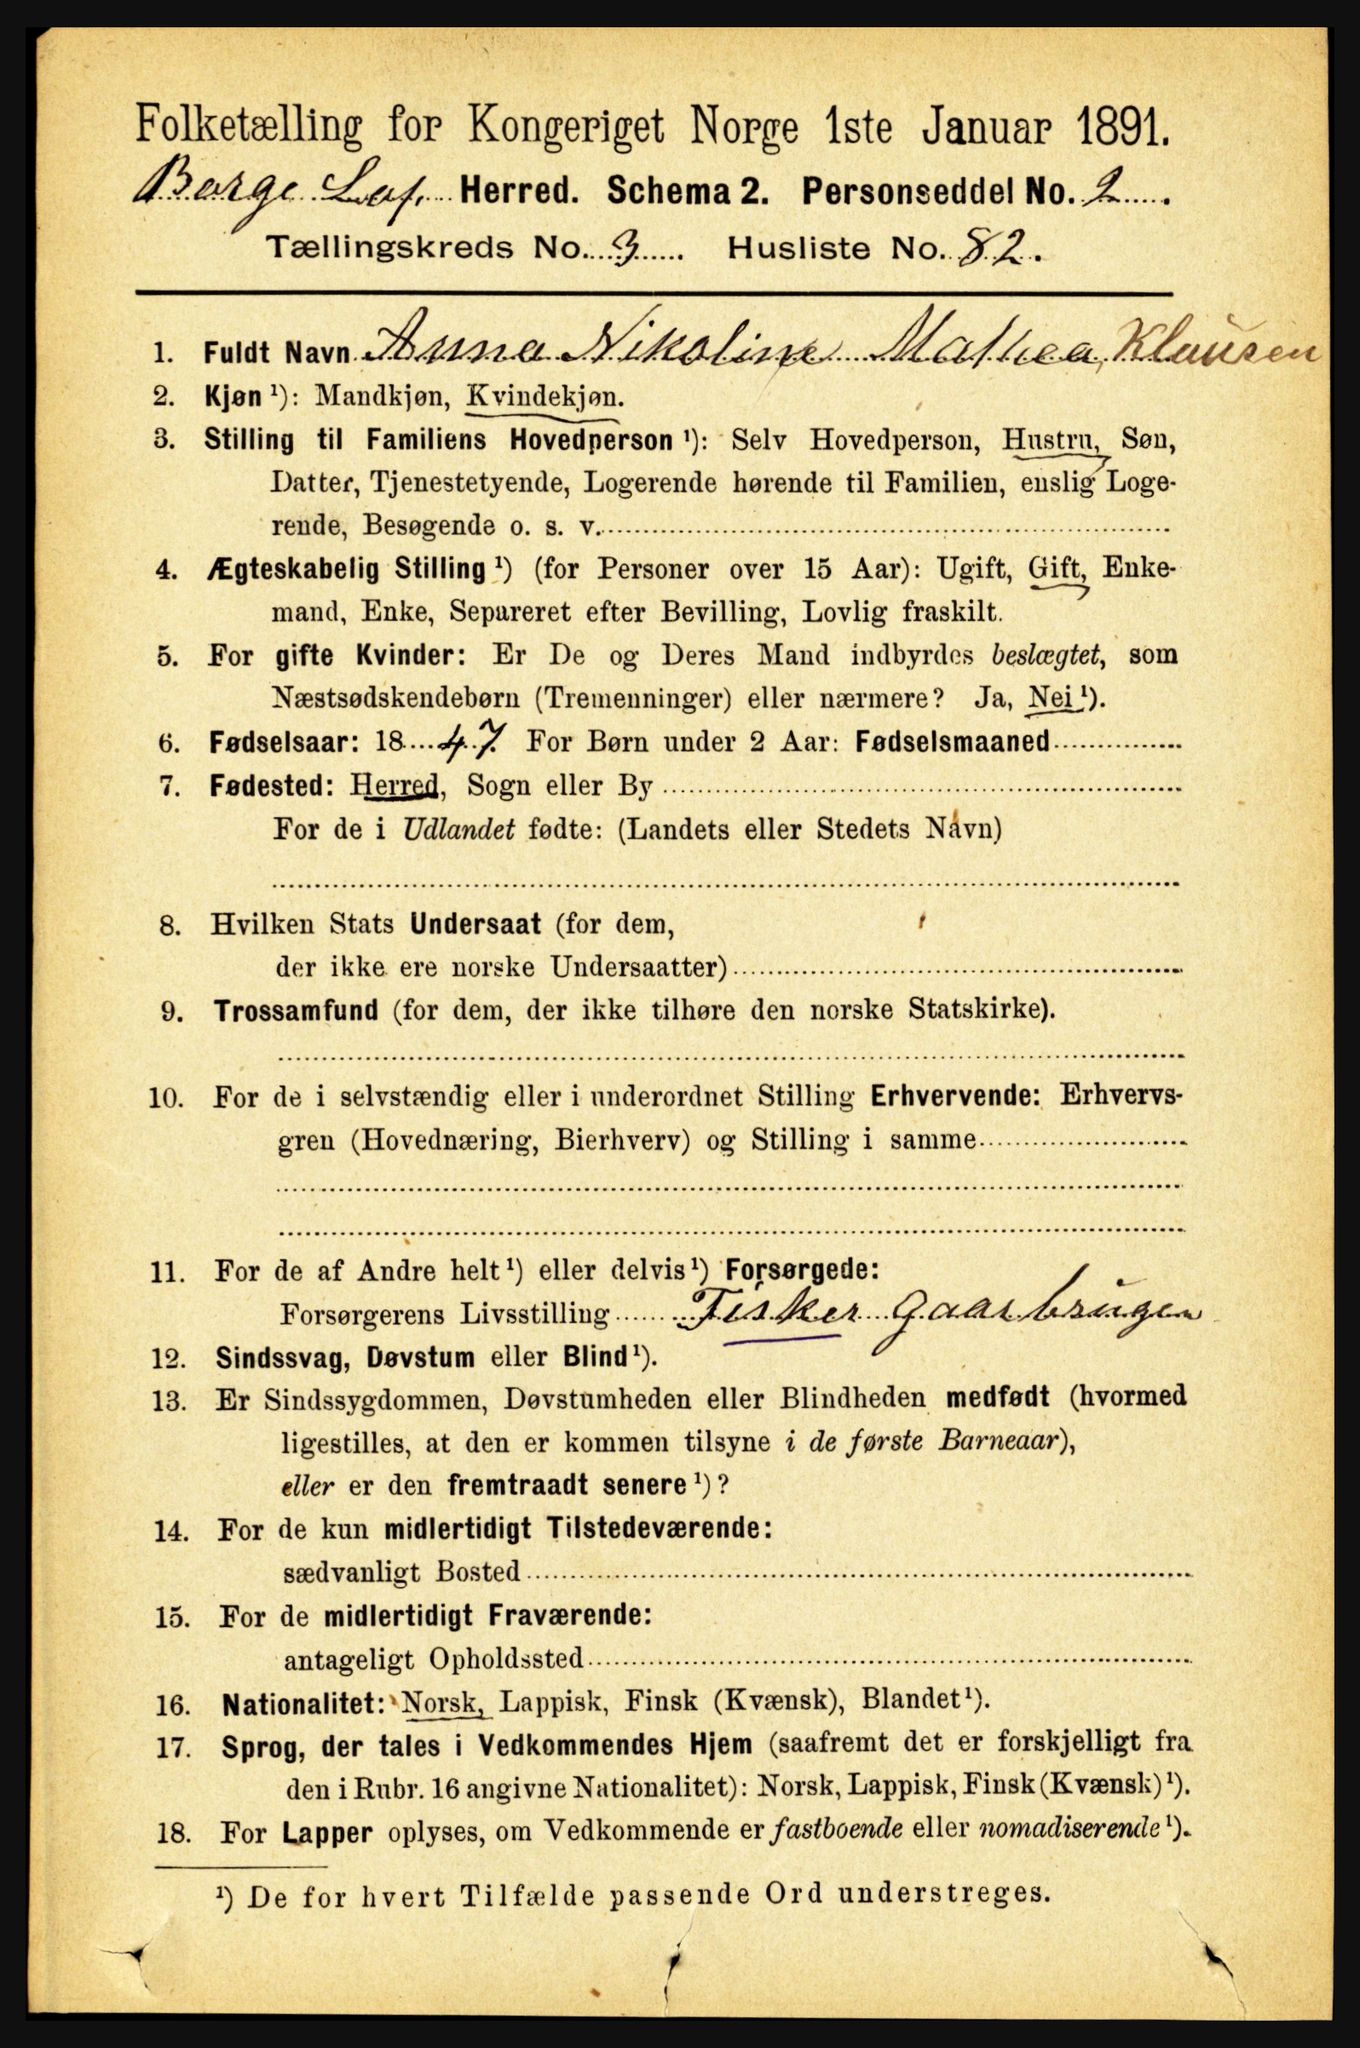 Folketælling for Kongeriget Norge 1ste Januar 1891.
Borge Lof. Herred. Schema 2. Personseddel No. 2
Tællingskreds No. 3 Husliste No. 82.
1. Fuldt Navn Anna Nikoline Mathea, Klausen
2. Kjøn ¹): Mandkjøn, Kvindekjøn.
3. Stilling til Familiens Hovedperson ¹): Selv Hovedperson, Hustru, Søn,
Datter, Tjenestetyende, Logerende hørende til Familien, enslig Loge-
rende, Besøgende o. s. v.
4. Ægteskabelig Stilling ¹) (for Personer over 15 Aar): Ugift, Gift, Enke-
mand, Enke, Separeret efter Bevilling, Lovlig fraskilt.
5. For gifte Kvinder: Er De og Deres Mand indbyrdes beslægtet, som
Næstsødskendebørn (Tremenninger) eller nærmere? Ja, Nei ¹).
6. Fødselsaar: 18 47. For Børn under 2 Aar: Fødselsmaaned
7. Fødested: Herred, Sogn eller By
For de i Udlandet fødte: (Landets eller Stedets Navn)
8. Hvilken Stats Undersaat (for dem,
der ikke ere norske Undersaatter)
9. Trossamfund (for dem, der ikke tilhøre den norske Statskirke).
10. For de i selvstændig eller i underordnet Stilling Erhvervende: Erhvervs-
gren (Hovednæring, Bierhverv) og Stilling i samme
11. For de af Andre helt ¹) eller delvis ¹) Forsørgede:
Forsørgerens Livsstilling Fisker gaarbruger
12. Sindssvag, Døvstum eller Blind ¹).
13. Er Sindssygdommen, Døvstumheden eller Blindheden medfødt (hvormed
ligestilles, at den er kommen tilsyne i de første Barneaar),
eller er den fremtraadt senere ¹)?
14. For de kun midlertidigt Tilstedeværende:
sædvanligt Bosted
15. For de midlertidigt Fraværende:
antageligt Opholdssted
16. Nationalitet: Norsk, Lappisk, Finsk (Kvænsk), Blandet ¹).
17. Sprog, der tales i Vedkommendes Hjem (saafremt det er forskjelligt fra
den i Rubr. 16 angivne Nationalitet): Norsk, Lappisk, Finsk (Kvænsk) ¹).
18. For Lapper oplyses, om Vedkommende er fastboende eller nomadiserende ¹).
¹) De for hvert Tilfælde passende Ord understreges.